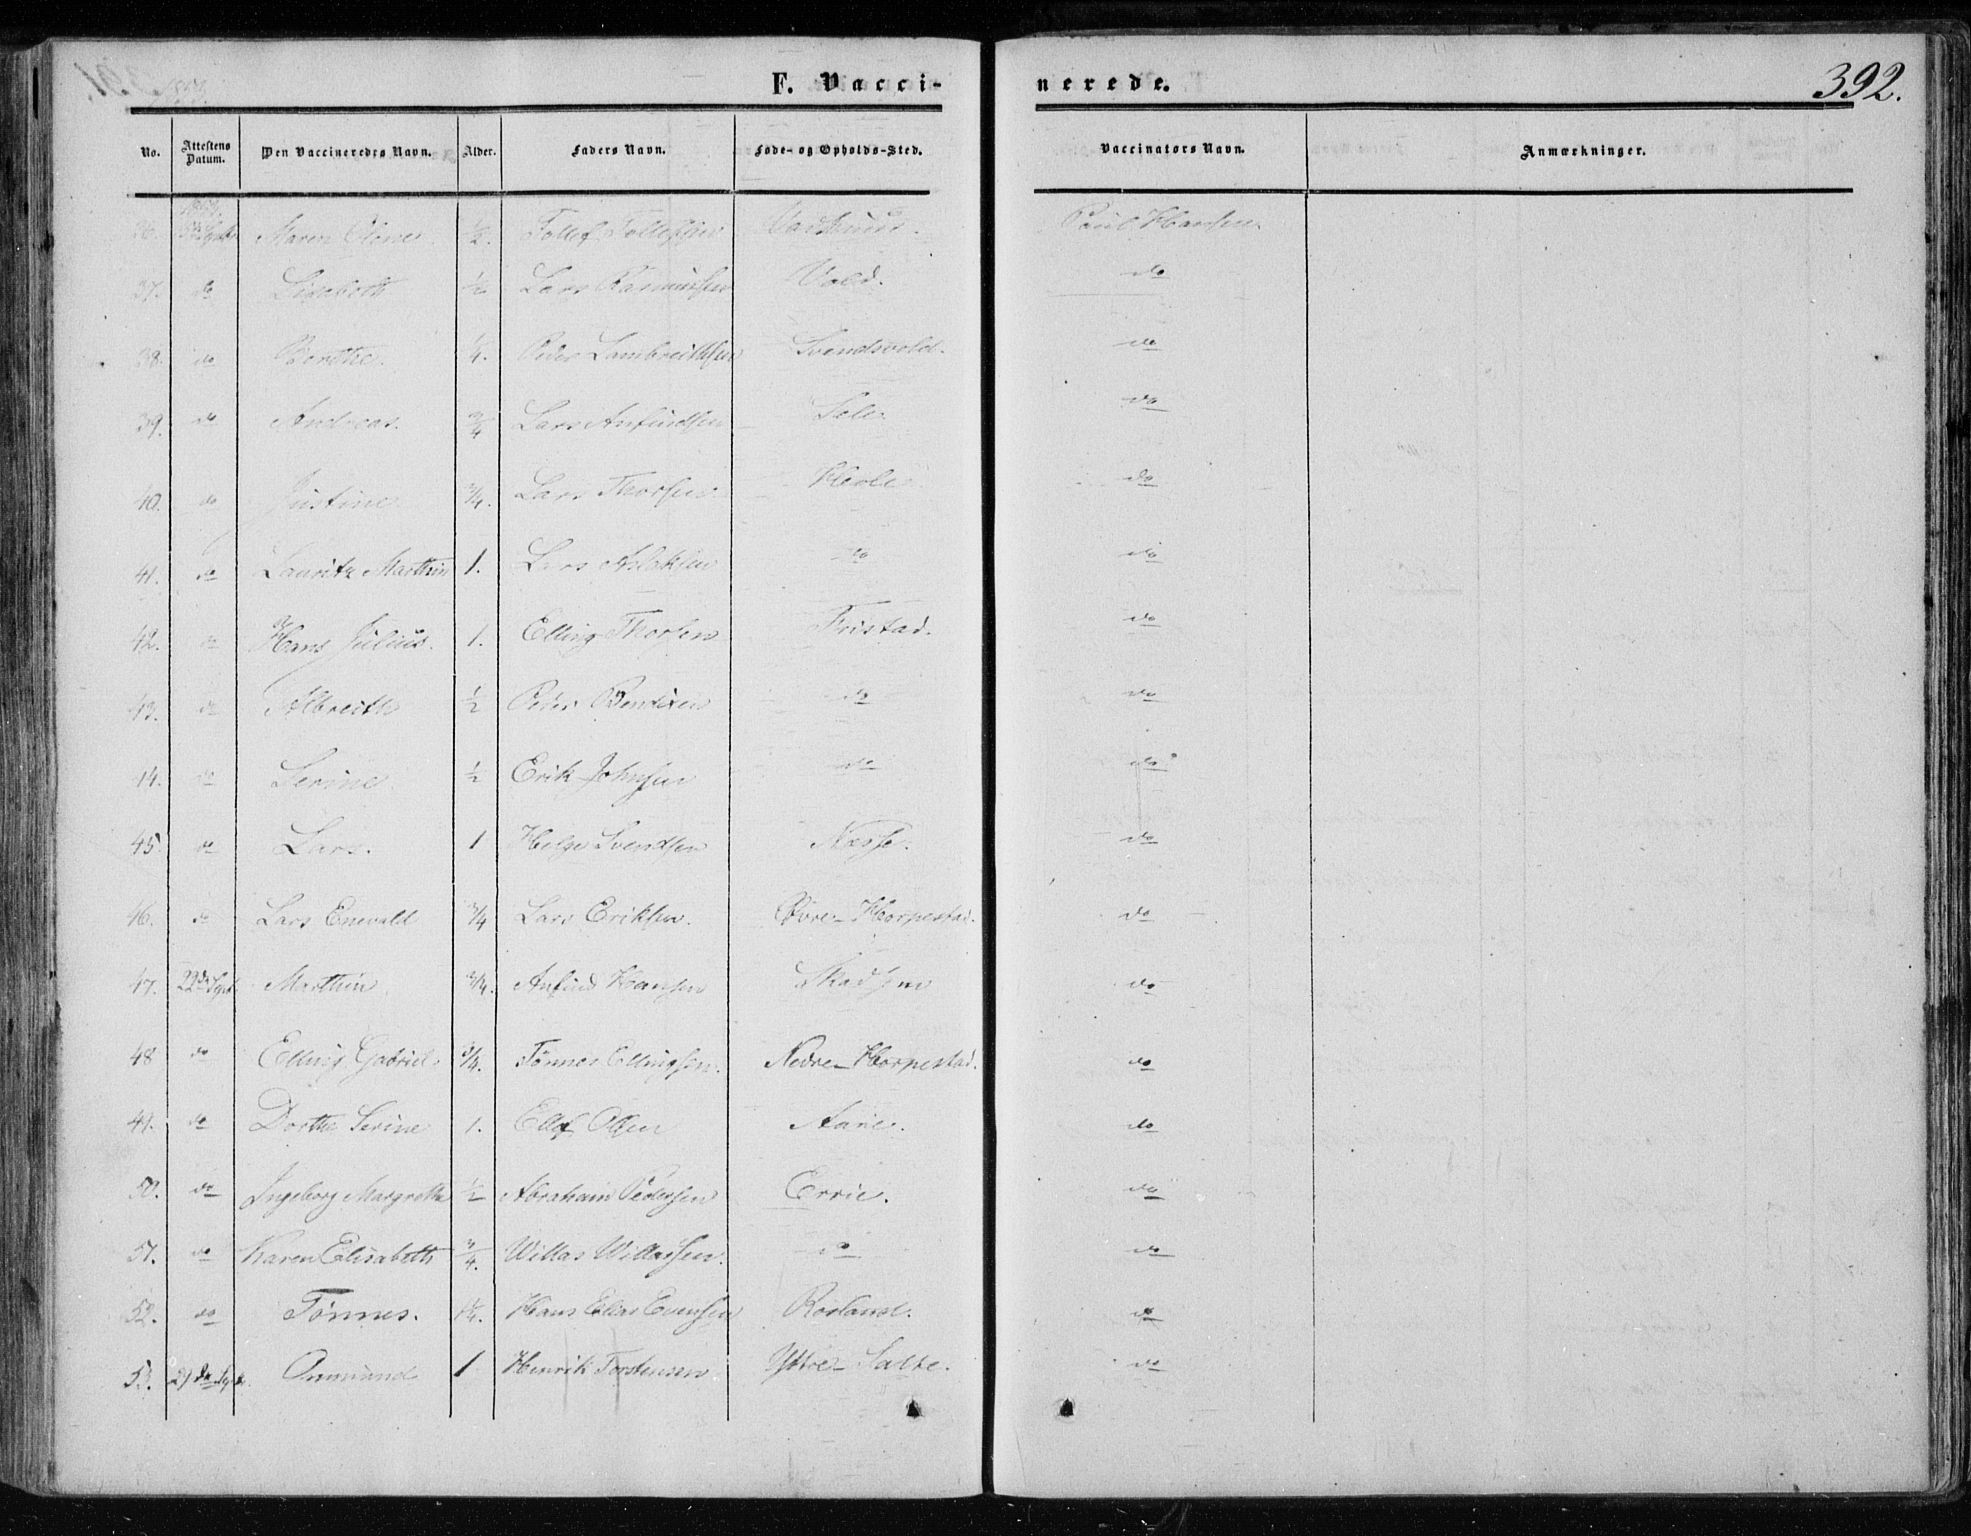 392.
F. Vaccinerede.
No. Attestens Datum. Den Vaccineredes Navn. Alder. Faders Navn. Føde- og Opholds-Sted. Vaccinators Navn. Anmærkninger.
36. Maren 1/2. Tollef Tollefsen Paul Hansen.
37. do Lisabeth 1/2 Lars Rasmussen Vold. do
38. do Berthe. 1/4. Peder Lambreithsen Svendsvold. do
39. do Andreas. 3/4 Lars Anfindsen Sele do
40. do Justine 3/4. Lars Thorsen Hole do
41. do Lauritz Marthin 1. Lars Aslaksen do do
42. do Hans Julius. 1. Elling Thorsen Fristad. do
43. do Albreith 1/2 Peder Bentsen do do
44. do Serine 1/2 Erik Johnsen do do
45. do Lars. 1 Helge Svendsen Næsse. do
46. do Lars Enevald 3/4 Lars Eriksen. Øvre-Horpestad. do
47. 22de Sept. Marthin 3/4. Anfind Hansen Skadsem do
48 do Elling Gabriel 3/4. Tønnes Ellingsen. Nedre-Horpestad. do
49. do Dorthe Serine 1. Ellef Olsen Aarre. do
50. do Ingeborg Margrethe 1/2 Abraham Pedersen Errie. do
51. do Karen Elisabeth 3/4. Willas Willassen. do do
52. do Tønnes. Hans Elias Evensen Rosland. do
53. Ommund 1 Henrik Torstensen Yttre-Salte. do